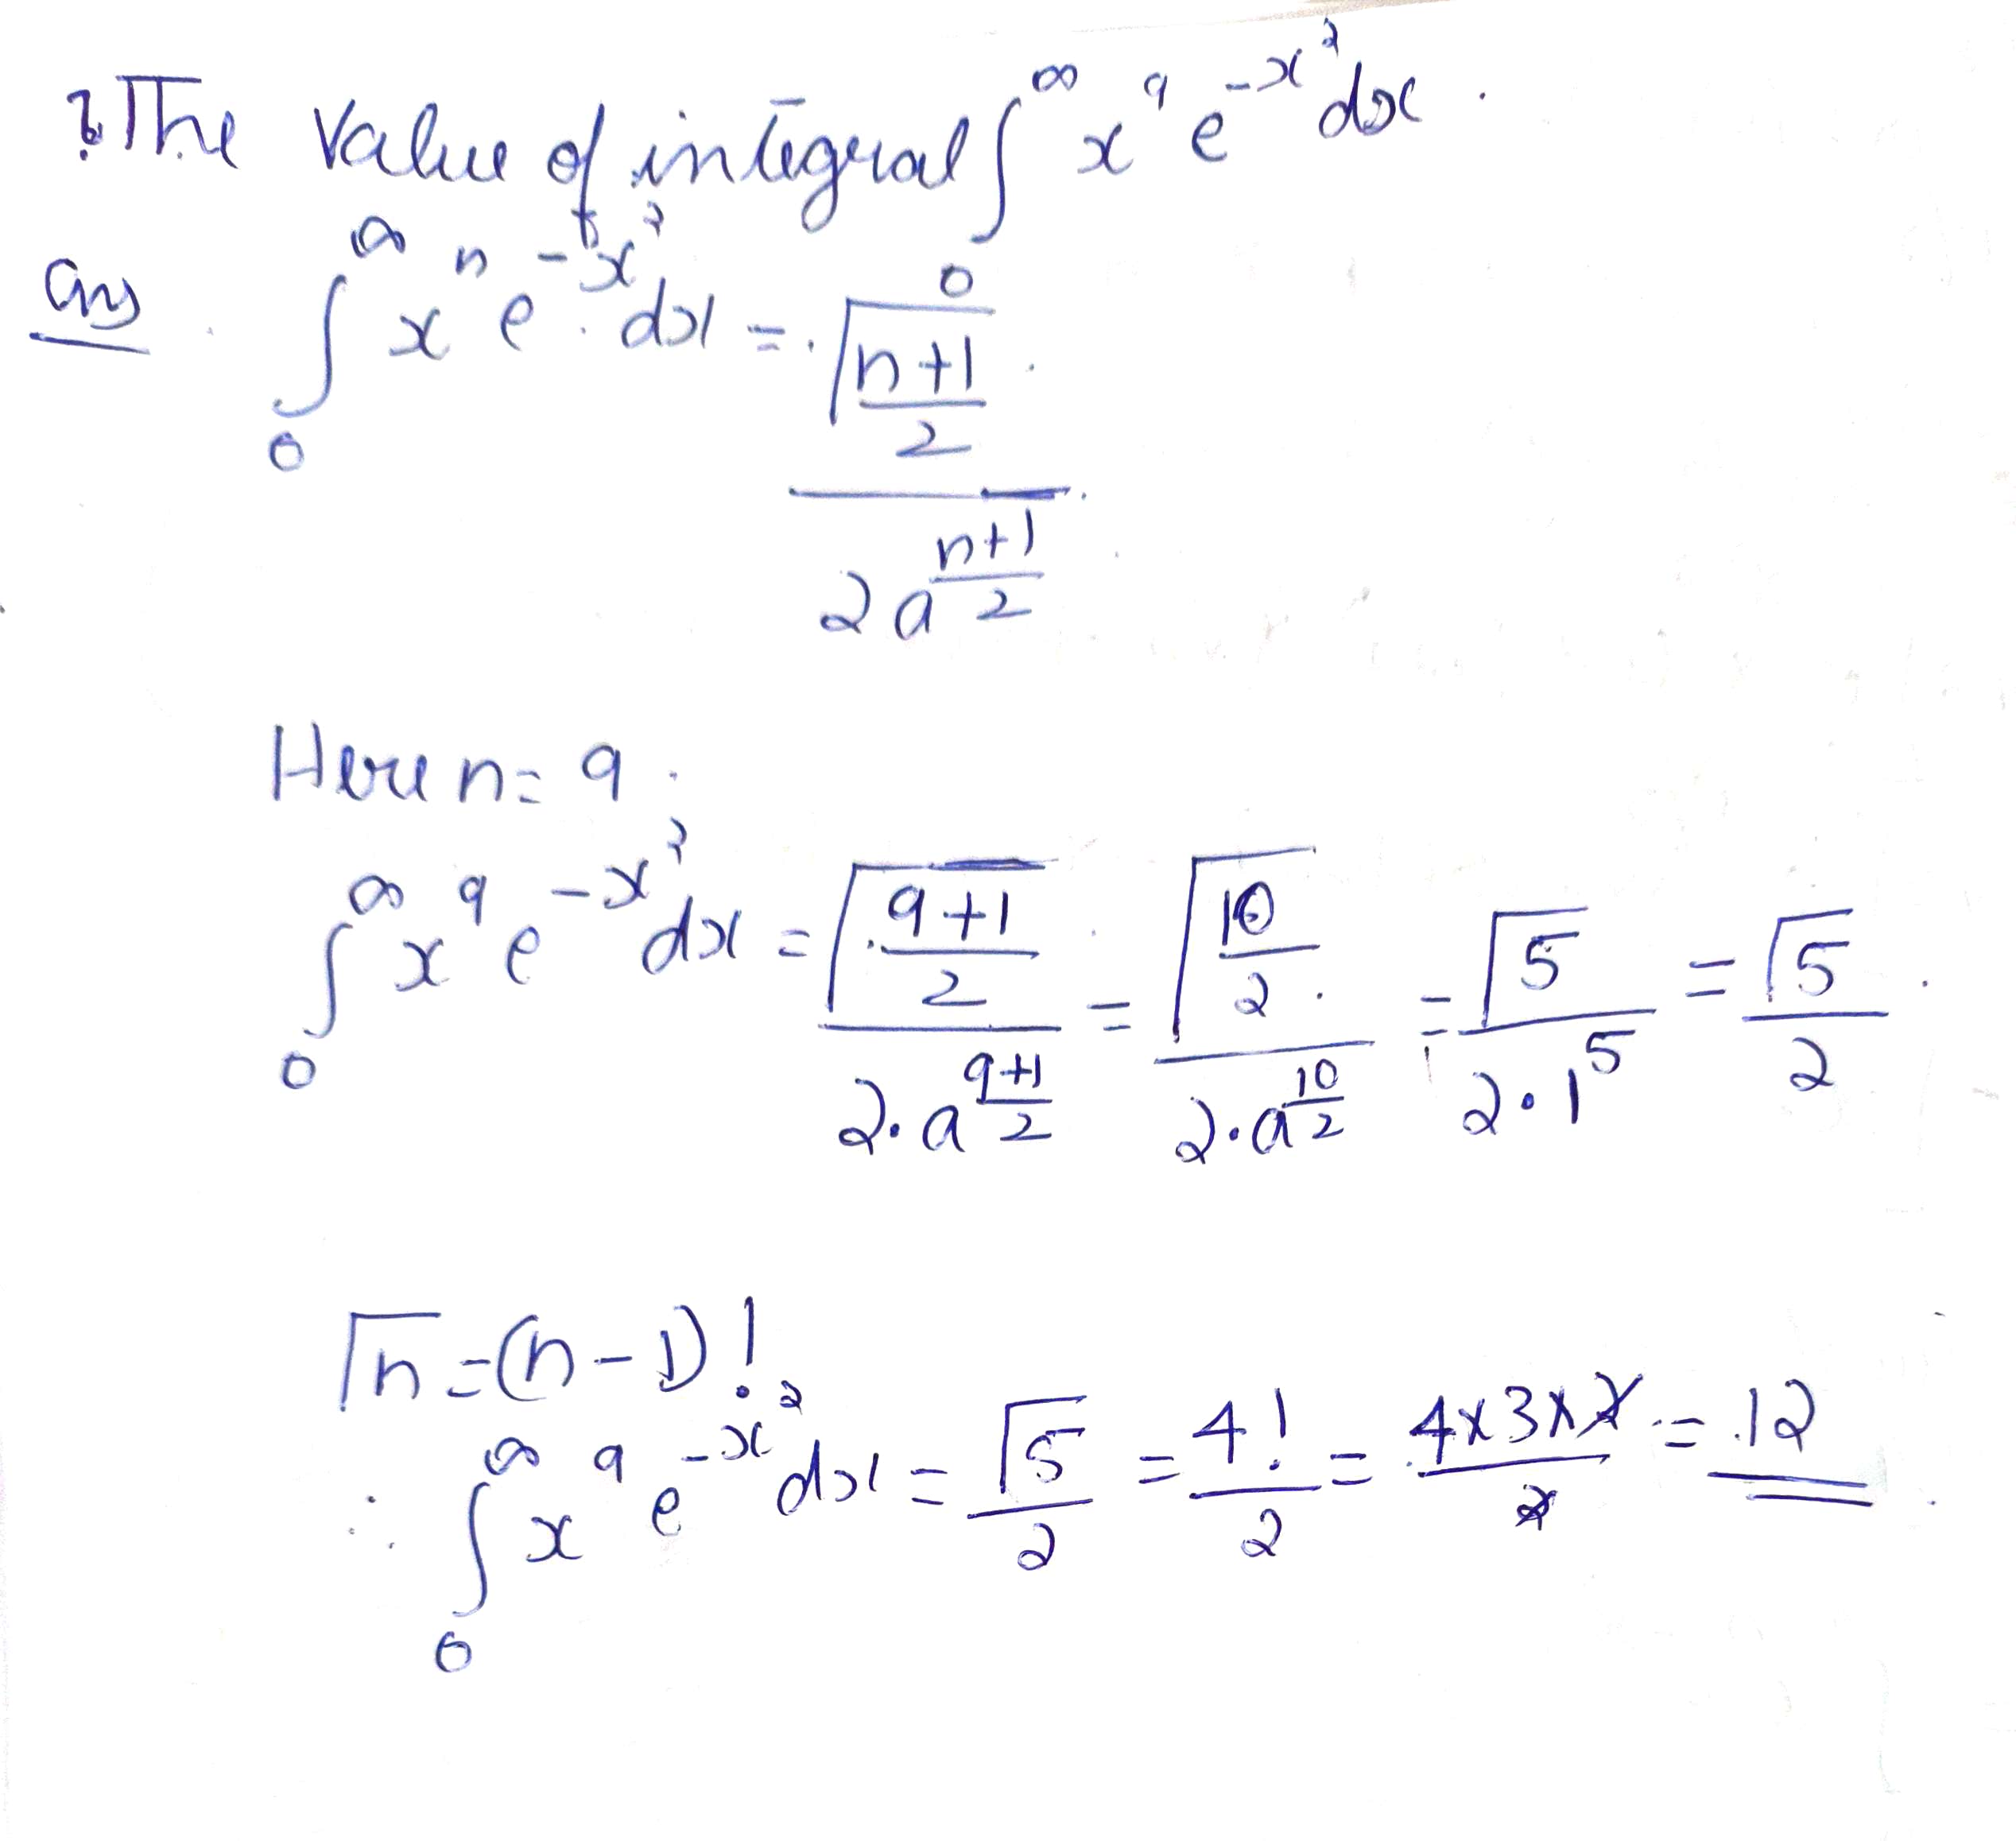 ? The Value of integral ∫₀^∞ x⁹ e^{-x²} dx.
Ans ∫₀^∞ x^n e^{-x²} dx = Γ((n+1)/2) / (2a^{(n+1)/2})
Here n = 9.
∫₀^∞ x⁹ e^{-x²} dx = Γ((9+1)/2) / (2·a^{(9+1)/2}) = Γ(10/2) / (2·a^{10/2}) = Γ5 / (2·1⁵) = Γ5 / 2
Γn = (n-1)!
∴ ∫₀^∞ x⁹ e^{-x²} dx = Γ5 / 2 = 4! / 2 = 4×3×2 / 2 = 12